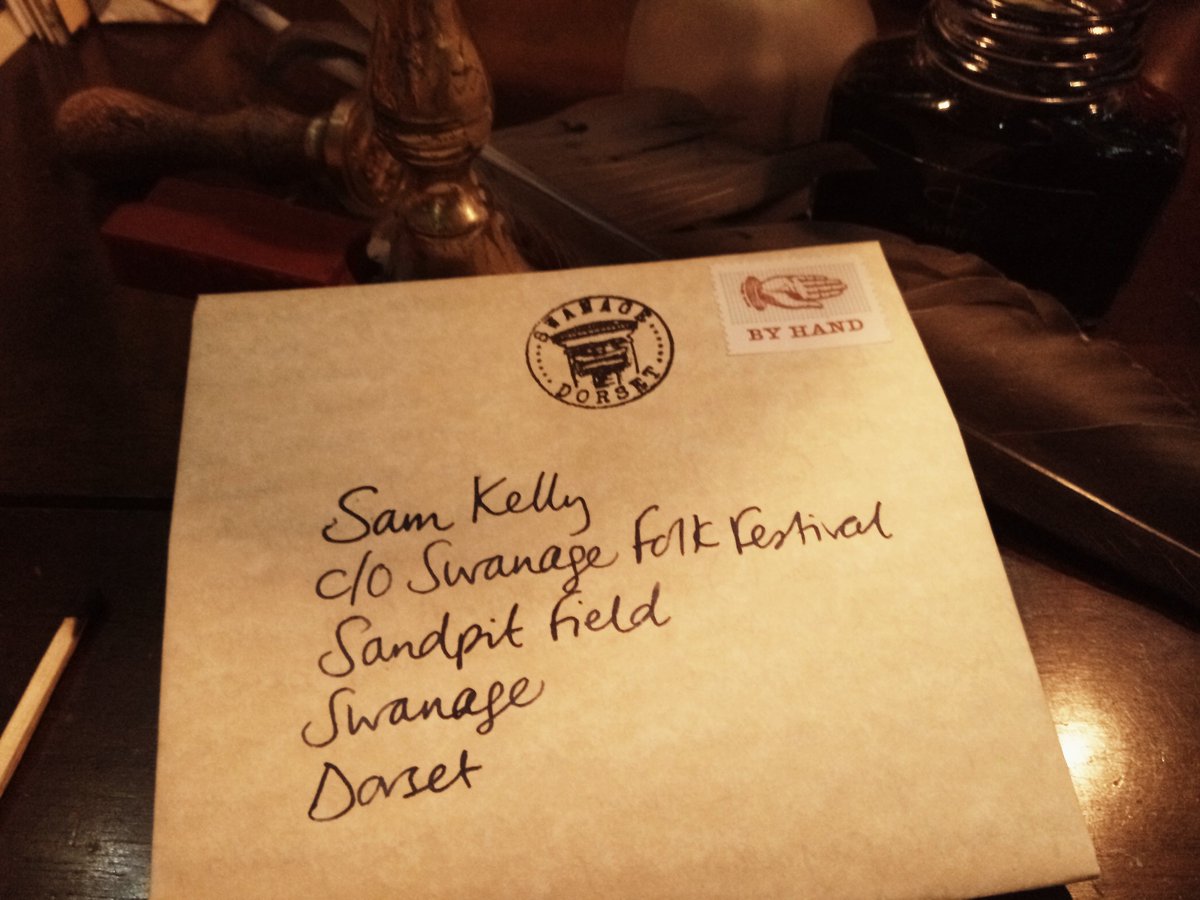 SWANAGE
DORSET
BY HAND
Sam Kelly
c/o Swanage Folk Festival
Sandpit Field
Swanage
Dorset